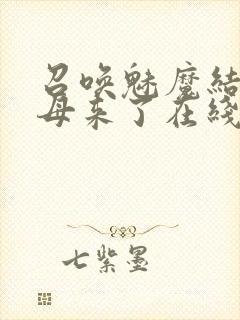 召唤魅魔结
母来了在綫
七紫墨